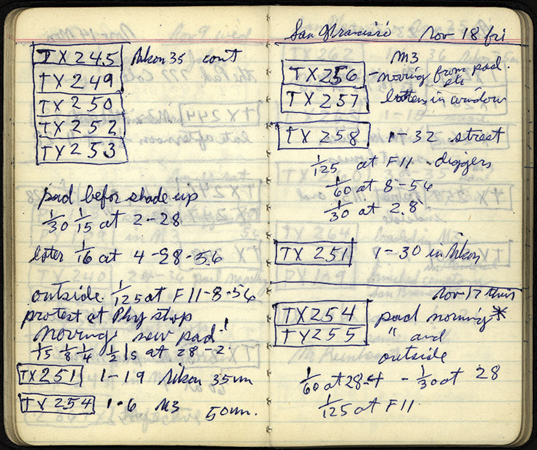 TX245 Nikon 35 cont
TX249
TX250
TX252
TX253
pad befor shade up
1/30 1/15 at 2-28
later 1/16 at 4-28-56
outside 1/125 at F11-8-56
protest at Phy stop
moving new pad!
1/15 1/8 1/4 1/2 1s at 28-2
TX251 1-19 Nikon 35mm
TX254 1-6 M3 50mm.
San Francisco Nov 18 fri
TX256 M3
-moving from pad etc
TX257 letters in window
TX258 1-32 street
1/125 at F11-diggers
1/60 at 8-56
1/30 at 2.8
TX251 1-30 in Nikon
Nov-17 thur
TX254 pad moving*
TX255 " and
outside
1/60 at 28-4 - 1/30 at 28
1/125 at F11